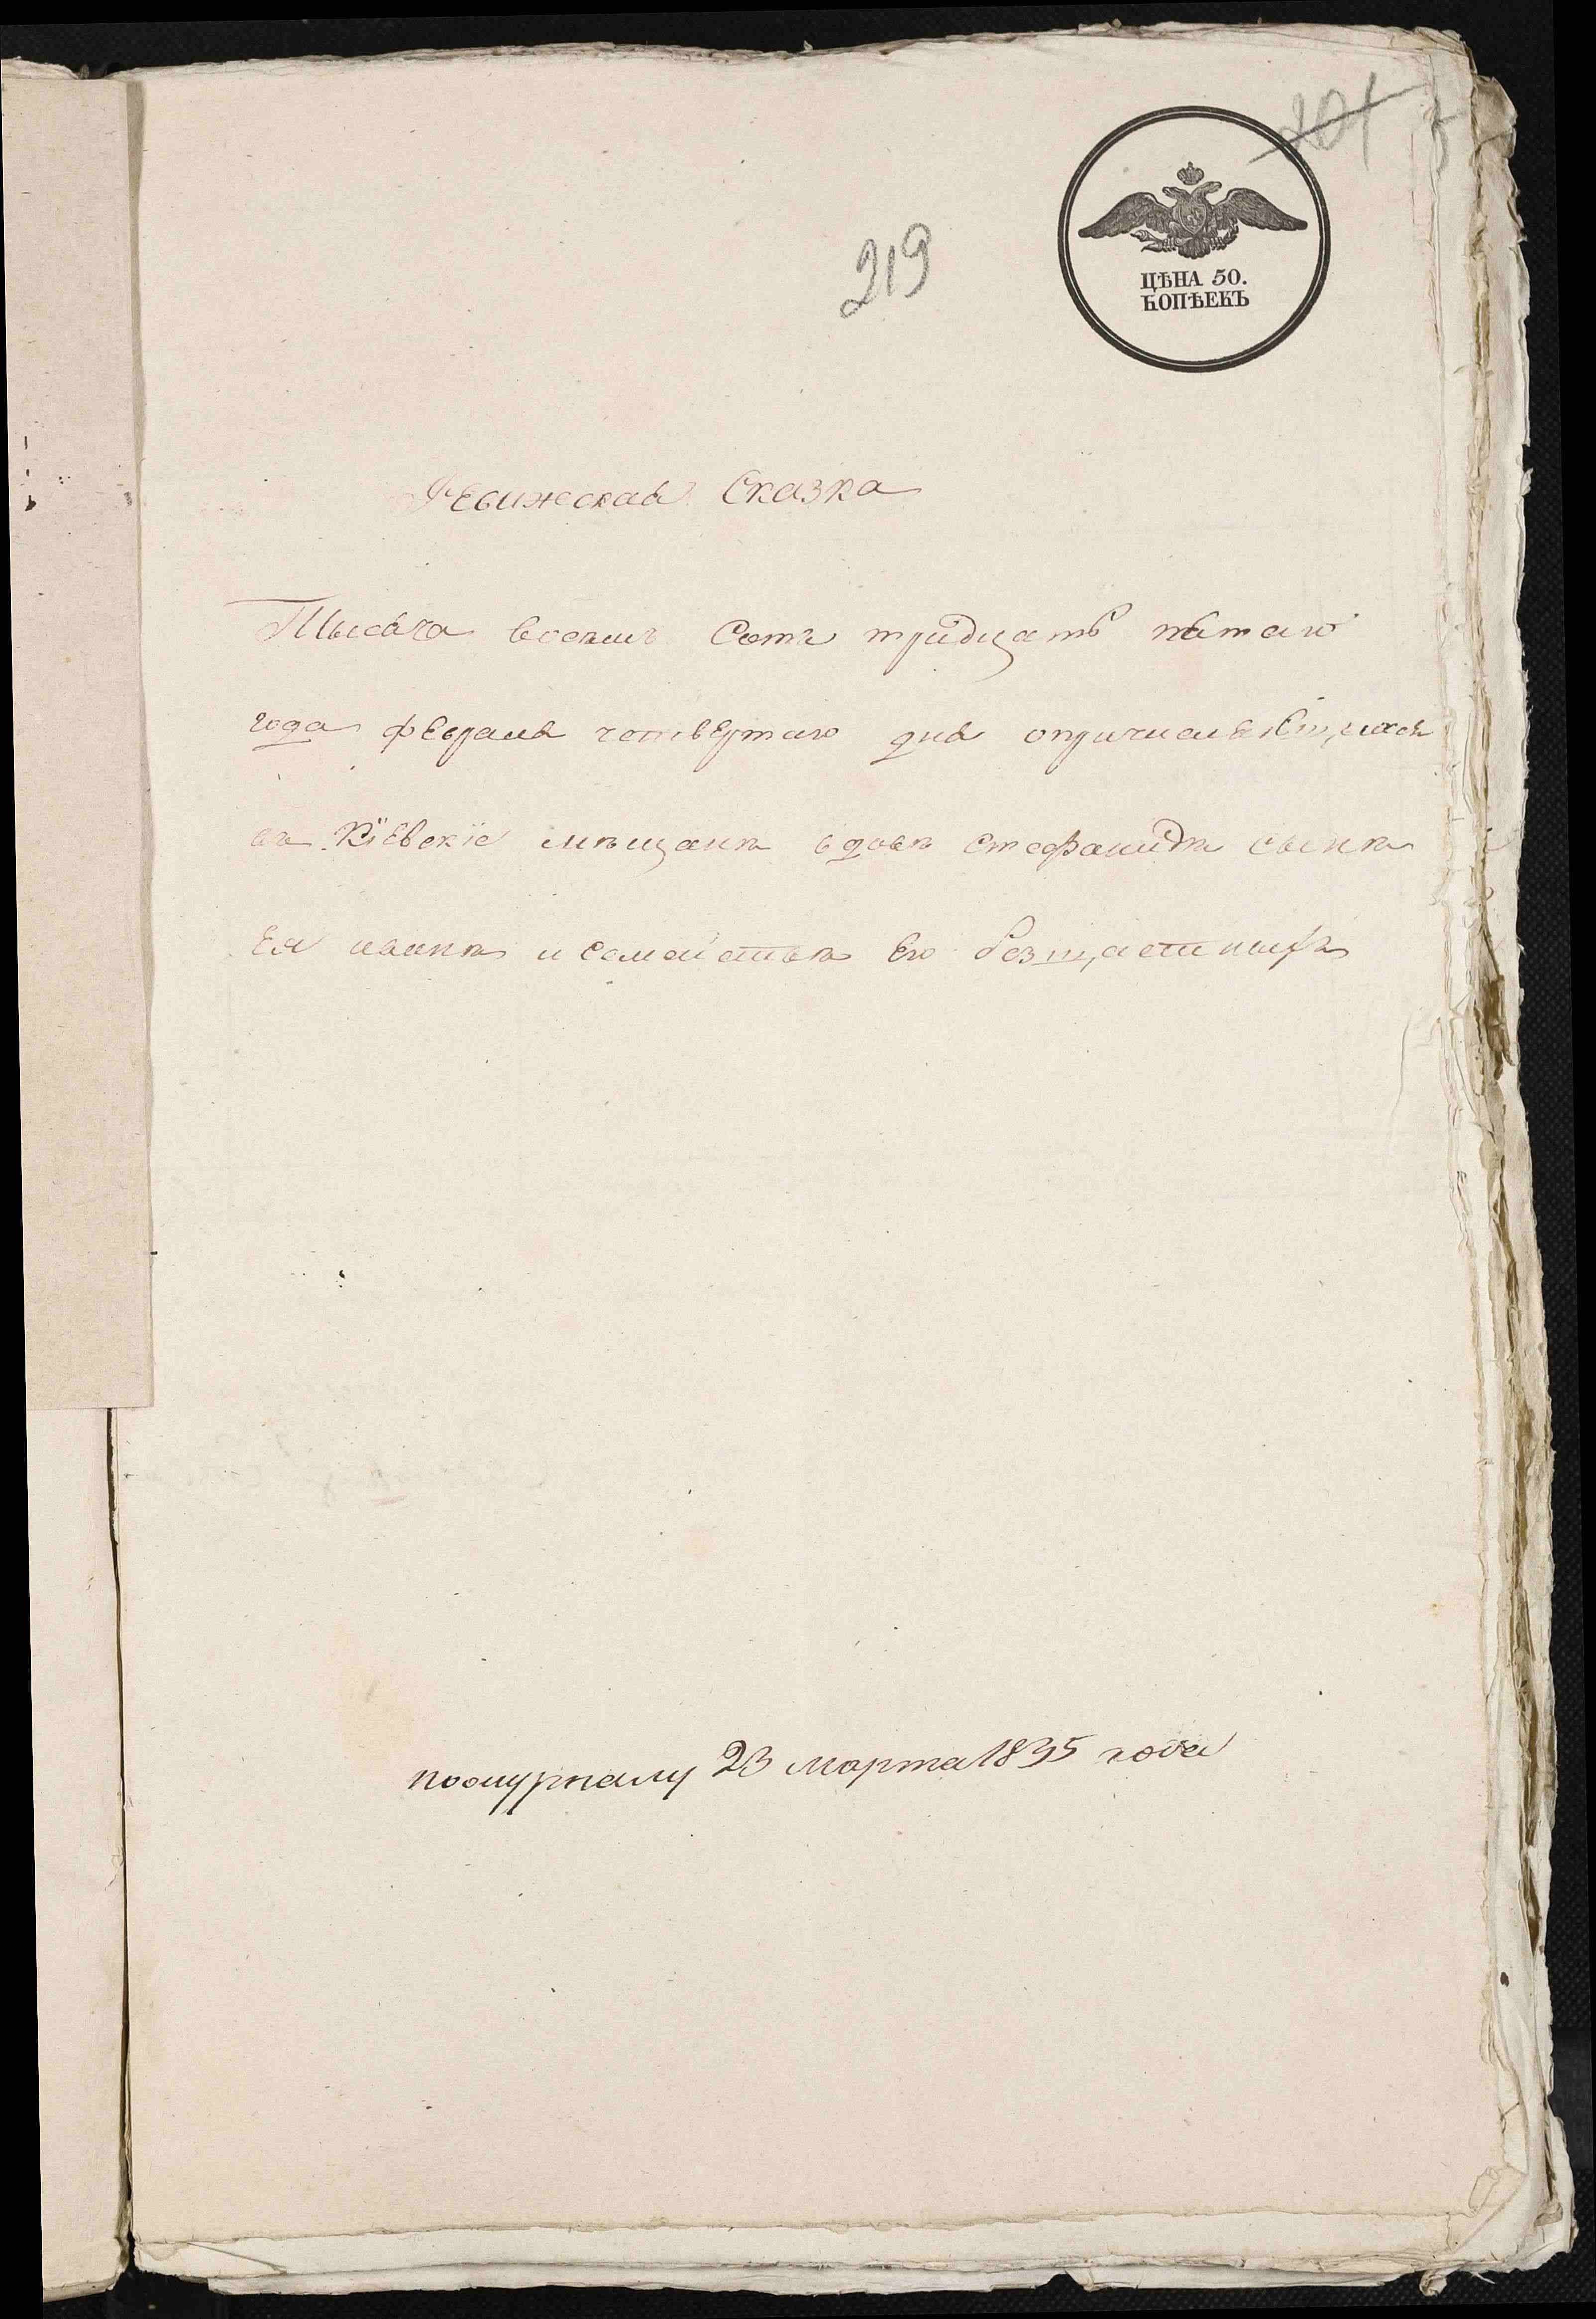 201
219
ЦѢНА 50.
КОПѢЕКЪ
Ревижская Сказка
Тысяча восемь Сотъ тридцать пятаго
года февраля четвертаго дня опричисляющихся
въ Кіевскіе мѣщане вдовѣ Стефаниды сынѣ
Ея иванѣ и Семействѣ Его безщастныхъ
пожурналу 23 марта 1835 года